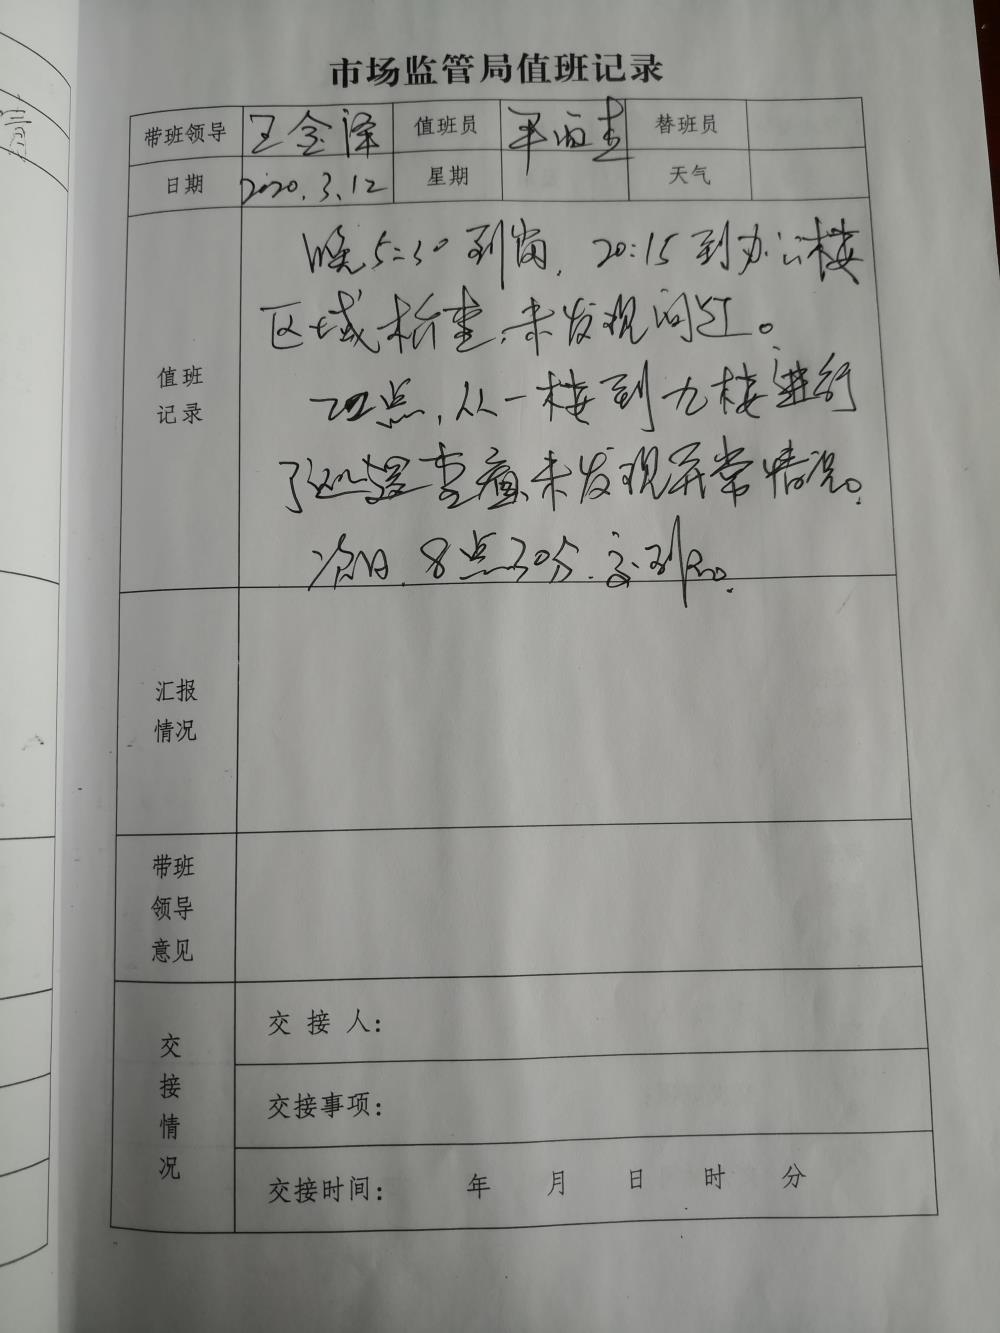 市场监管局值班记录
带班领导 王金泽 值班员 替班员
日期 2020.3.12 星期 天气
值班记录
晚5:30到岗，20:15到办公楼
区域检查，未发现问题。
22点，从一楼到九楼进行
了巡逻查痕，未发现异常情况。
次日，8点30分，交班。
汇报情况
带班领导意见
交接情况
交接人：
交接事项：
交接时间： 年 月 日 时 分